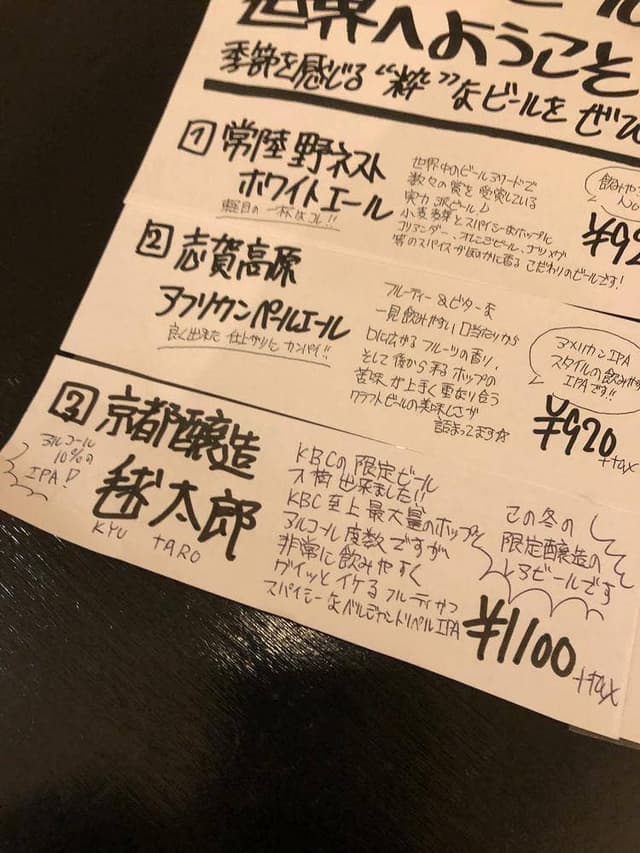 世界へようこそ
季節を感じる“粋”なビールを ぜひ
1 常陸野ネスト
ホワイトエール
一杯はコレ!!
世界中のビールアワードで
数々の賞を受賞している
実力派ビール♪
小麦麦芽とスパイシーなホップに
コリアンダー、オレンジピール、ナツメグ
等のスパイスがほのかに香る こだわりのビールです!
飲みやす
¥92
2 志賀高原
アフリカンペールエール
良く出来た 仕上がりに カンパイ!!
フルーティー&ビターな
一見飲みやすい口当たりから
口に広がる フルーツの香り、
そして後から来るホップの
苦味が上手く重なり合う
クラフトビールの美味しさが
詰まってます☆
アメリカンIPA
スタイルの飲みやす
IPAです!!
¥920
+tax
3 京都醸造
毬太郎
KYU TARO
アルコール
10%の
IPA!
KBCの限定ビール
入荷出来ました!!
KBC至上最大量のホップと
アルコール度数ですが
非常に飲みやすく
グイッとイケる フルーティかつ
スパイシーなベルジャントリペルIPA
この冬の
限定醸造の
とろビールです
¥1100
+tax